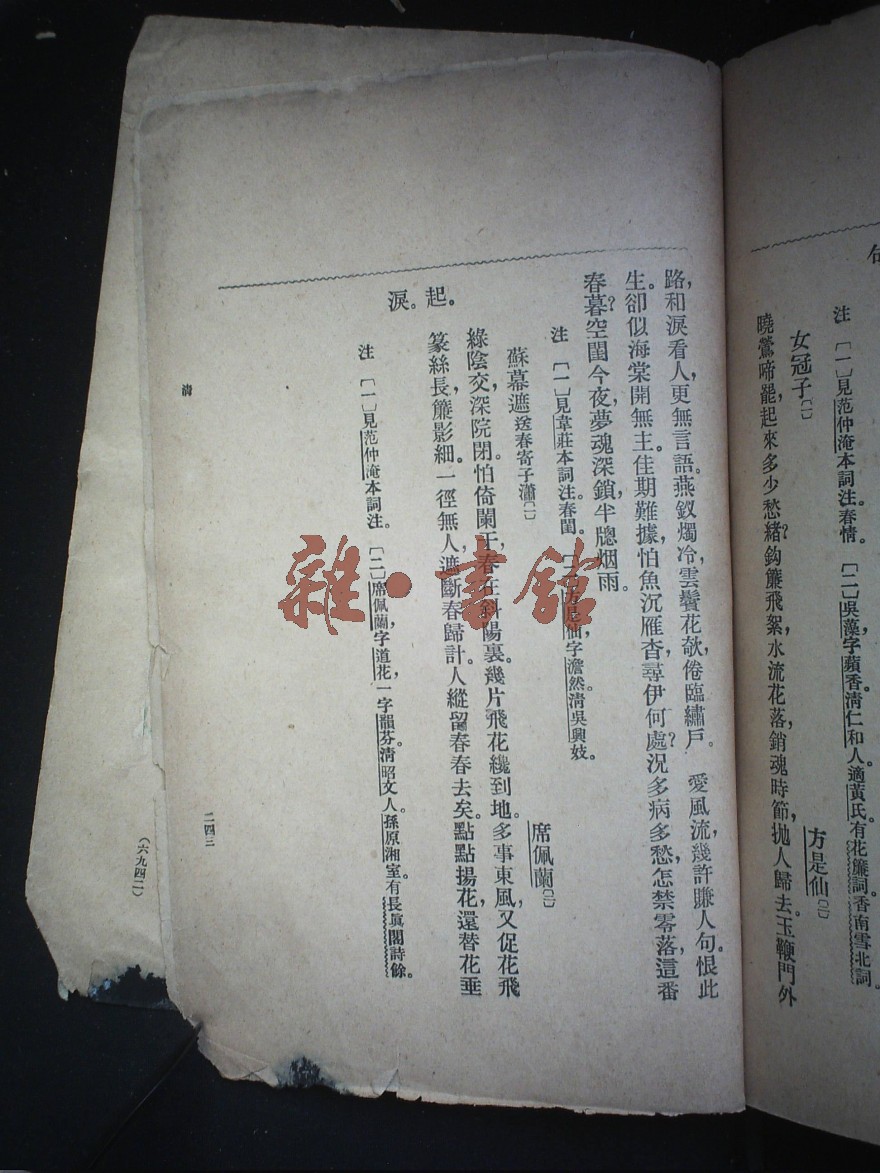 句
注 〔一〕見范仲淹本詞注。春情。 〔二〕吳藻字蘋香，清仁和人。適黃氏。有花簾詞，香南雪北詞。
女冠子〔一〕
方是仙〔二〕
曉鶯啼罷，起來多少愁緒？鈎簾飛絮，水流花落，銷魂時節，拋人歸去。玉鞭門外
路，和淚看人，更無言語。燕釵燭冷，雲鬢花欹，倦臨繡戶。 愛風流，幾許賺人句。恨此
生。卻似海棠開無主。佳期難據，怕魚沉雁杳，尋伊何處？況多病多愁，怎禁零落，這番
春暮？空閨今夜，夢魂深鎖，半牕烟雨。
注 〔一〕見韋莊本詞注。春閨。 〔二〕方是仙字澹然，清吳興妓。
蘇幕遮 送春寄子瀟〔一〕
席佩蘭〔二〕
綠陰交，深院閉。怕倚闌干，春在斜陽裏。幾片飛花纔到地。多事東風，又促花飛
起。
篆絲長，簾影細。一徑無人，遮斷春歸計。人縱留春春去矣。點點揚花，還替花垂
淚。
注 〔一〕見范仲淹本詞注。 〔二〕席佩蘭，字道花，一字韻芬。清昭文人。孫原湘室。有長眞閣詩餘。
清
二四三
（六九四二）
雜·書館